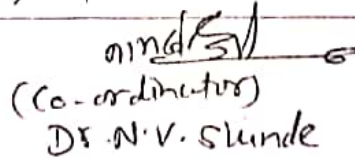 (Co-ordinator)
Dr. N. V. Shinde